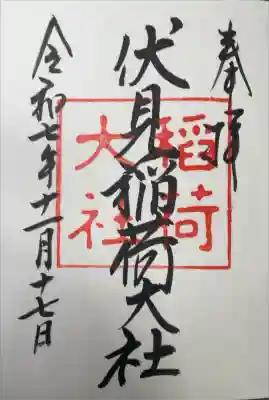 奉拝
伏見稲荷大社
稲荷
大社
令和七年十一月十七日